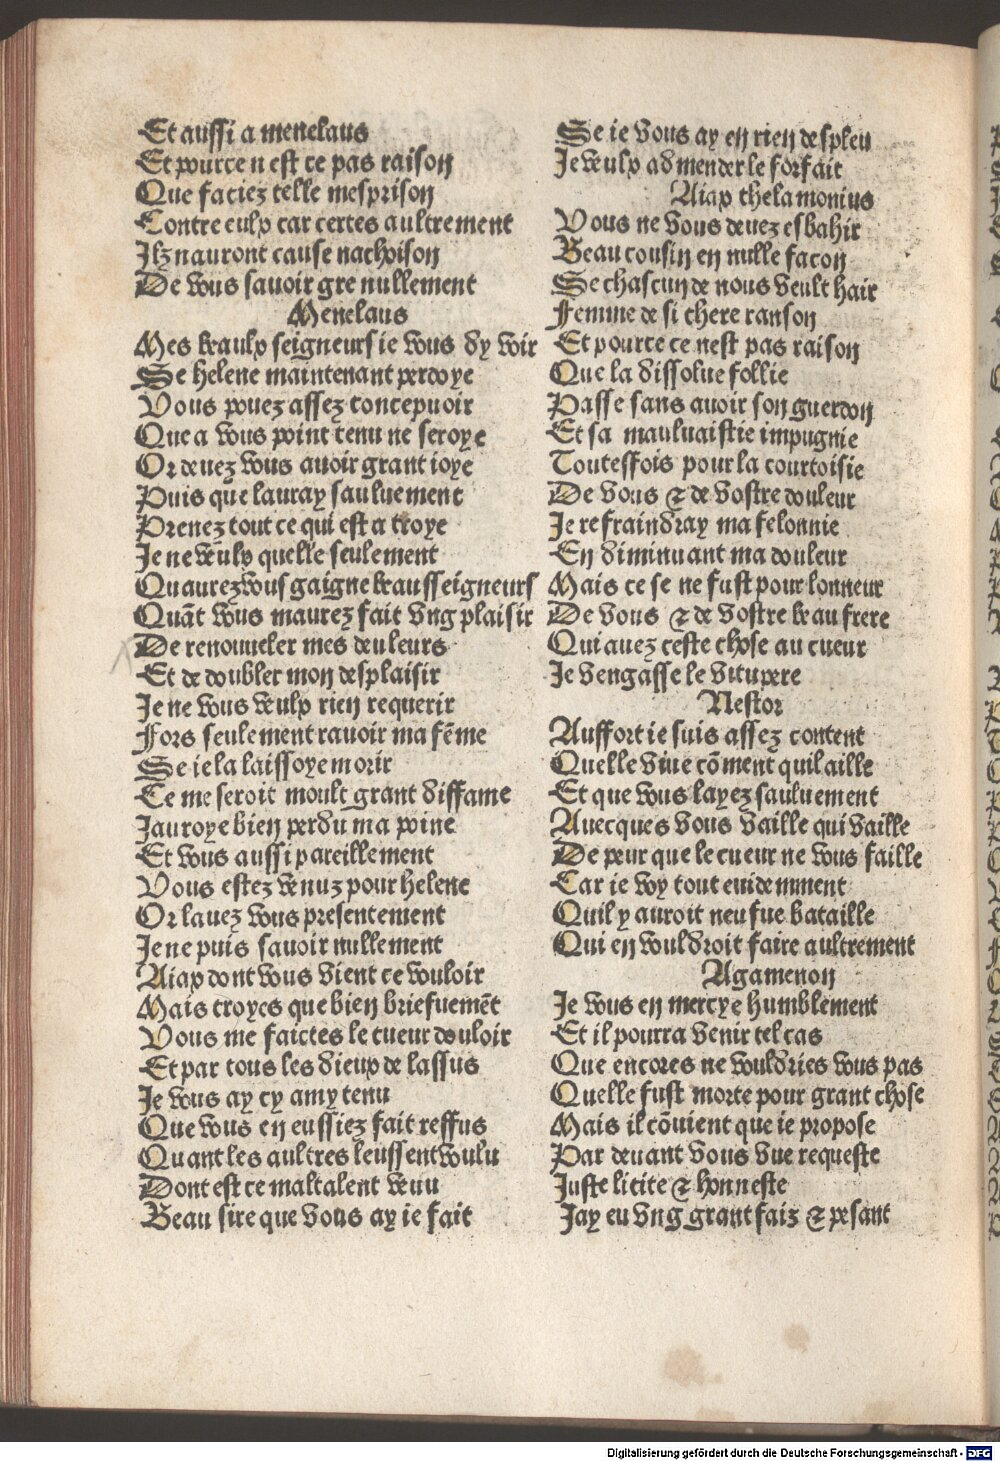 Et aussi a menelaus
Et pource n est ce pas raison
Que faciez telle mesprison
Contre eulx car certes aultrement
Ilz nauront cause nachoison
De vous sauoir gre nullement
Menelaus
Mes beaulx seigneurs ie vous dy voir
Se helene maintenant perdoye
Vous pouez assez concepuoir
Que a vous point tenu ne seroye
Or deuez vous auoir grant ioye
Puis que lauray sauluement
Prenez tout ce qui est a troye
Je ne veulx quelle seulement
Quaurez vous gaigne beausseigneurs
Quāt vous maurez fait vng plaisir
De renouueler mes deuleurs
Et de doubler mon desplaisir
Je ne vous veulx rien requerir
Fors seulement rauoir ma fēme
Se ie la laissoye morir
Ce me seroit moult grant diffame
Jauroye bien perdu ma poine
Et vous aussi pareillement
Vous estez venuz pour helene
Or lauez vous presentement
Je ne puis sauoir nullement
Aiax dont vous vient ce vouloir
Mais troyes que bien briefuemēt
Vous me faictes le cueur douloir
Et par tous les dieux de lassus
Je vous ay cy amy tenu
Que vous en eussiez fait reffus
Quant les aultres leussent voulu
Dont est ce maltalent venu
Beau sire que vous ay ie fait
Se ie vous ay en rien despleu
Je veulx admender le forfait
Aiax thelamonius
Vous ne vous deuez esbahir
Beau cousin en nulle facon
Se chascun de nous veult hair
Femme de si chere ranson
Et pource ce nest pas raison
Que la dissolue follie
Passe sans auoir son guerdon
Et sa mauluaistie impugnie
Toutesfois pour la courtoisie
De vous & de vostre douleur
Je refraindray ma felonnie
En diminuant ma douleur
Mais ce se ne fust pour lonneur
De vous & de vostre beau frere
Qui auez ceste chose au cueur
Je vengasse le vitupere
Nestor
Auffort ie suis assez content
Quelle viue cōment quil aille
Et que vous layez sauluement
Auecques vous vaille qui vaille
De peur que le cueur ne vous faille
Car ie voy tout euidemment
Quil y auroit neufue bataille
Qui en vouldroit faire aultrement
Agamenon
Je vous en mercye humblement
Et il pourra venir tel cas
Que encores ne vouldries vous pas
Quelle fust morte pour grant chose
Mais il cōuient que ie propose
Par deuant vous vue requeste
Juste licite & honneste
Jay eu vng grant faiz & pesant
Digitalisierung gefördert durch die Deutsche Forschungsgemeinschaft - DFG